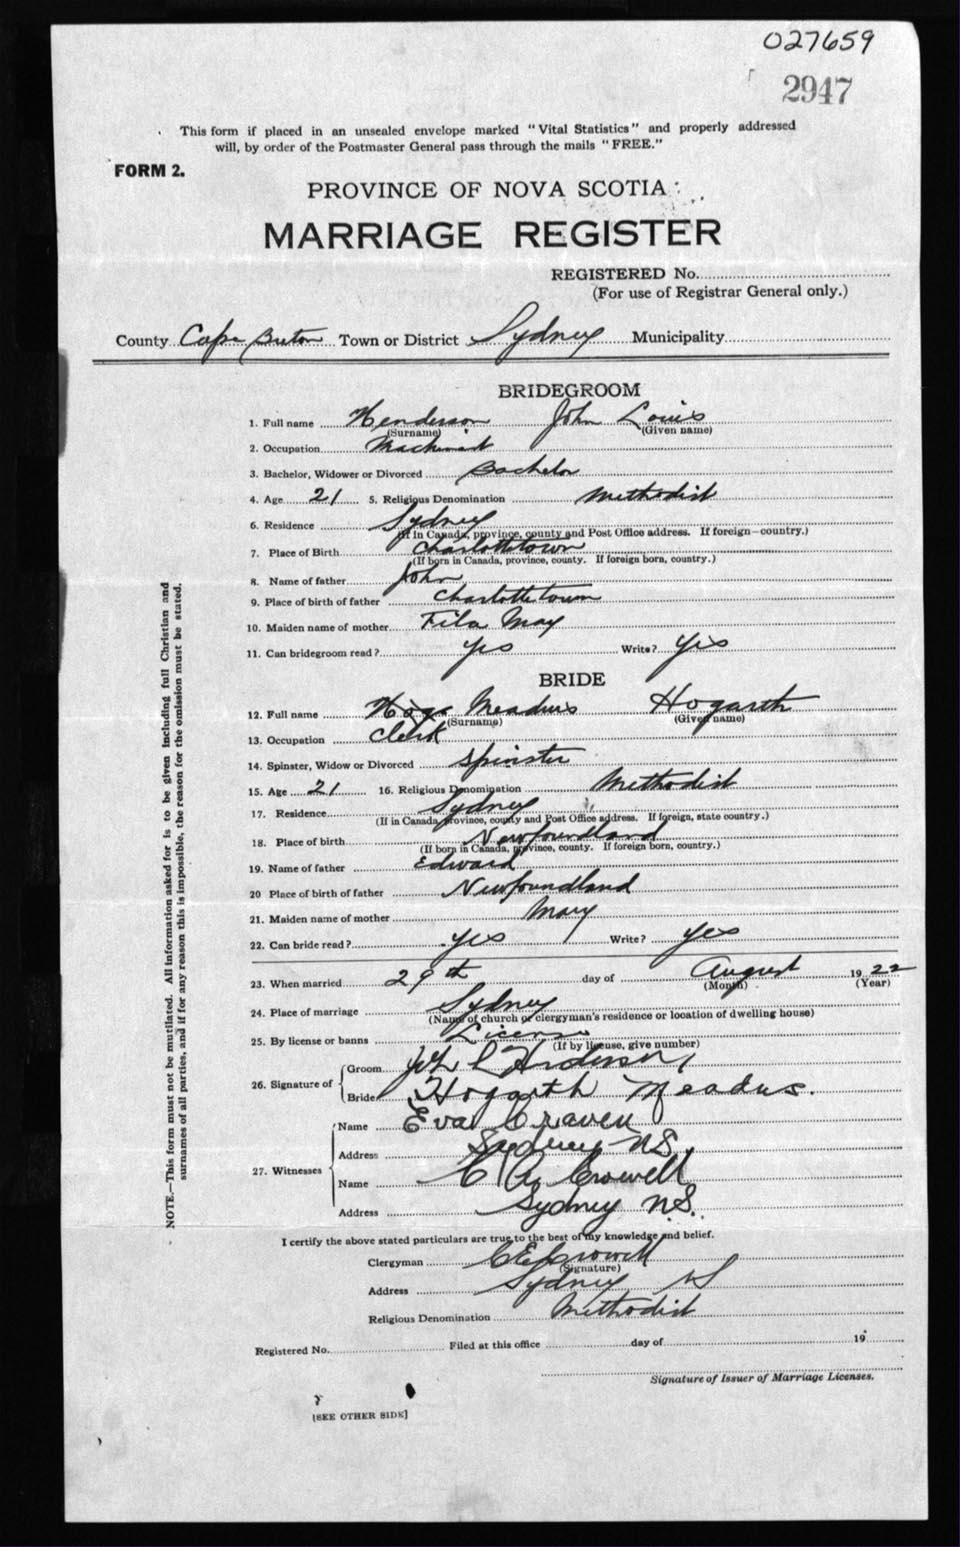 027659
2947
This form if placed in an unsealed envelope marked "Vital Statistics" and properly addressed
will, by order of the Postmaster General pass through the mails "FREE."
FORM 2.
PROVINCE OF NOVA SCOTIA
MARRIAGE REGISTER
REGISTERED No.
(For use of Registrar General only.)
County Cape Breton Town or District Sydney Municipality
BRIDEGROOM
1. Full name Henderson John Louis
(Surname) (Given name)
2. Occupation Machinist
3. Bachelor, Widower or Divorced Bachelor
4. Age 21 5. Religious Denomination Methodist
6. Residence Sydney
(If in Canada, province, county and Post Office address. If foreign—country.)
7. Place of Birth Charlottetown
(If born in Canada, province, county. If foreign born, country.)
8. Name of father John
9. Place of birth of father Charlottetown
10. Maiden name of mother May
11. Can bridegroom read? yes Write? yes
BRIDE
12. Full name Meadus Hogarth
(Surname) (Given name)
13. Occupation Clerk
14. Spinster, Widow or Divorced Spinster
15. Age 21 16. Religious Denomination Methodist
17. Residence Sydney
(If in Canada, province, county and Post Office address. If foreign, state country.)
18. Place of birth Newfoundland
(If born in Canada, province, county. If foreign born, country.)
19. Name of father Edward
20 Place of birth of father Newfoundland
21. Maiden name of mother Mary
22. Can bride read? yes Write? yes
23. When married 29th day of August 1922
(Month) (Year)
24. Place of marriage Sydney
(Name of church or clergyman's residence or location of dwelling house)
25. By license or banns License
(If by license, give number)
26. Signature of
Groom John L Henderson,
Bride Hogarth Meadus.
27. Witnesses
Name Eva Craven
Address Sydney NS.
Name C A Crowell
Address Sydney N.S.
I certify the above stated particulars are true to the best of my knowledge and belief.
Clergyman Crowell
(Signature)
Address Sydney NS
Religious Denomination Methodist
Registered No. Filed at this office day of 19
Signature of Issuer of Marriage Licenses.
[SEE OTHER SIDE]
NOTE.—This form must not be mutilated. All information asked for is to be given including full Christian and
surnames of all parties, and if for any reason this is impossible, the reason for the omission must be stated.